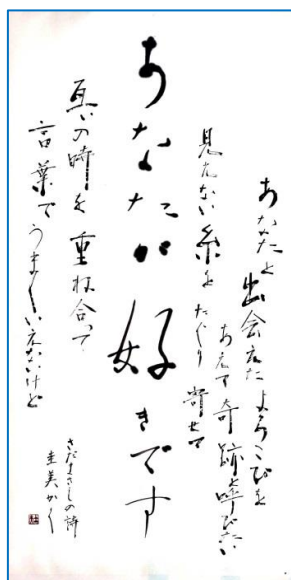 あなたと出会えたよろこびを
あえて奇跡と呼びたい
見えない糸を たぐり寄せて
あなたが好きです
互いの時を 重ね合って
言葉で うまくいえないけど
さだまさしの詩
圭美かく